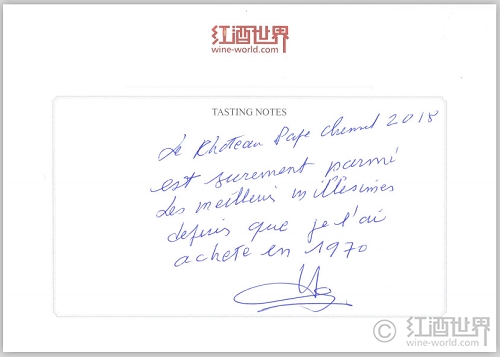 红酒世界
wine-world.com
TASTING NOTES
Le Khoteau Pape Clement 2018
est surement parmi
les meilleurs millésimes
depuis que je l'ai
acheté en 1970
© 红酒世界
wine-world.com